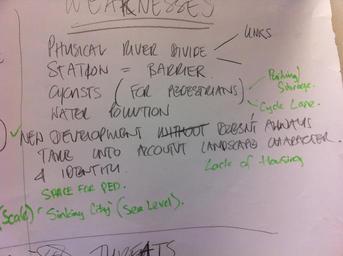 WEAKNESSES
PHYSICAL RIVER DIVIDE
LINKS
STATION = BARRIER
CYCLISTS (FOR PEDESTRIANS)
Parking/
Storage.
Cycle Lane.
WATER POLLUTION
✓ NEW DEVELOPMENT WITHOUT DOESN'T ALWAYS
TAKE INTO ACCOUNT LANDSCAPE CHARACTER
& IDENTITY.
Lack of Housing
SPACE FOR PED.
(Scale) "Sinking City" (Sea Level).
THREATS